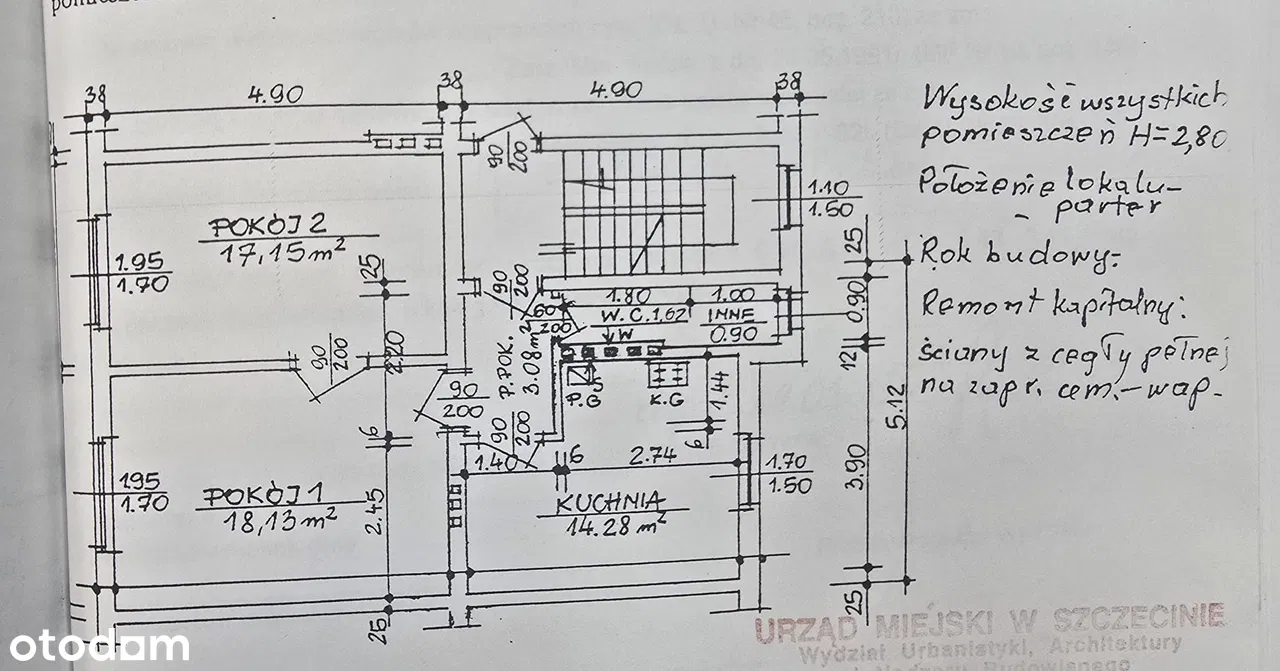 38
4.90
38
4.90
38
90
200
POKÓJ 2
17,15 m²
1.95
1.70
25
2.20
90
200
90
200
1.10
1.50
25
0.90
12
5.12
3.90
25
60
200
1.80
1.00
W.C. 1,62
INNE
0.90
W
P.POK.
3.08 m²
P.G
K.G
1.44
6
90
200
90
200
1.40
6
2.74
1.70
1.50
6
2.45
25
195
1.70
POKÓJ 1
18,13 m²
KUCHNIA
14.28 m²
Wysokość wszystkich
pomieszczeń H=2,80
Położenie lokalu-
- parter
Rok budowy:
Remont kapitalny:
ściany z cegły pełnej
na zapr. cem.-wap.
URZĄD MIEJSKI W SZCZECINIE
Wydział Urbanistyki, Architektury
Nadzoru Budowlanego
otodom